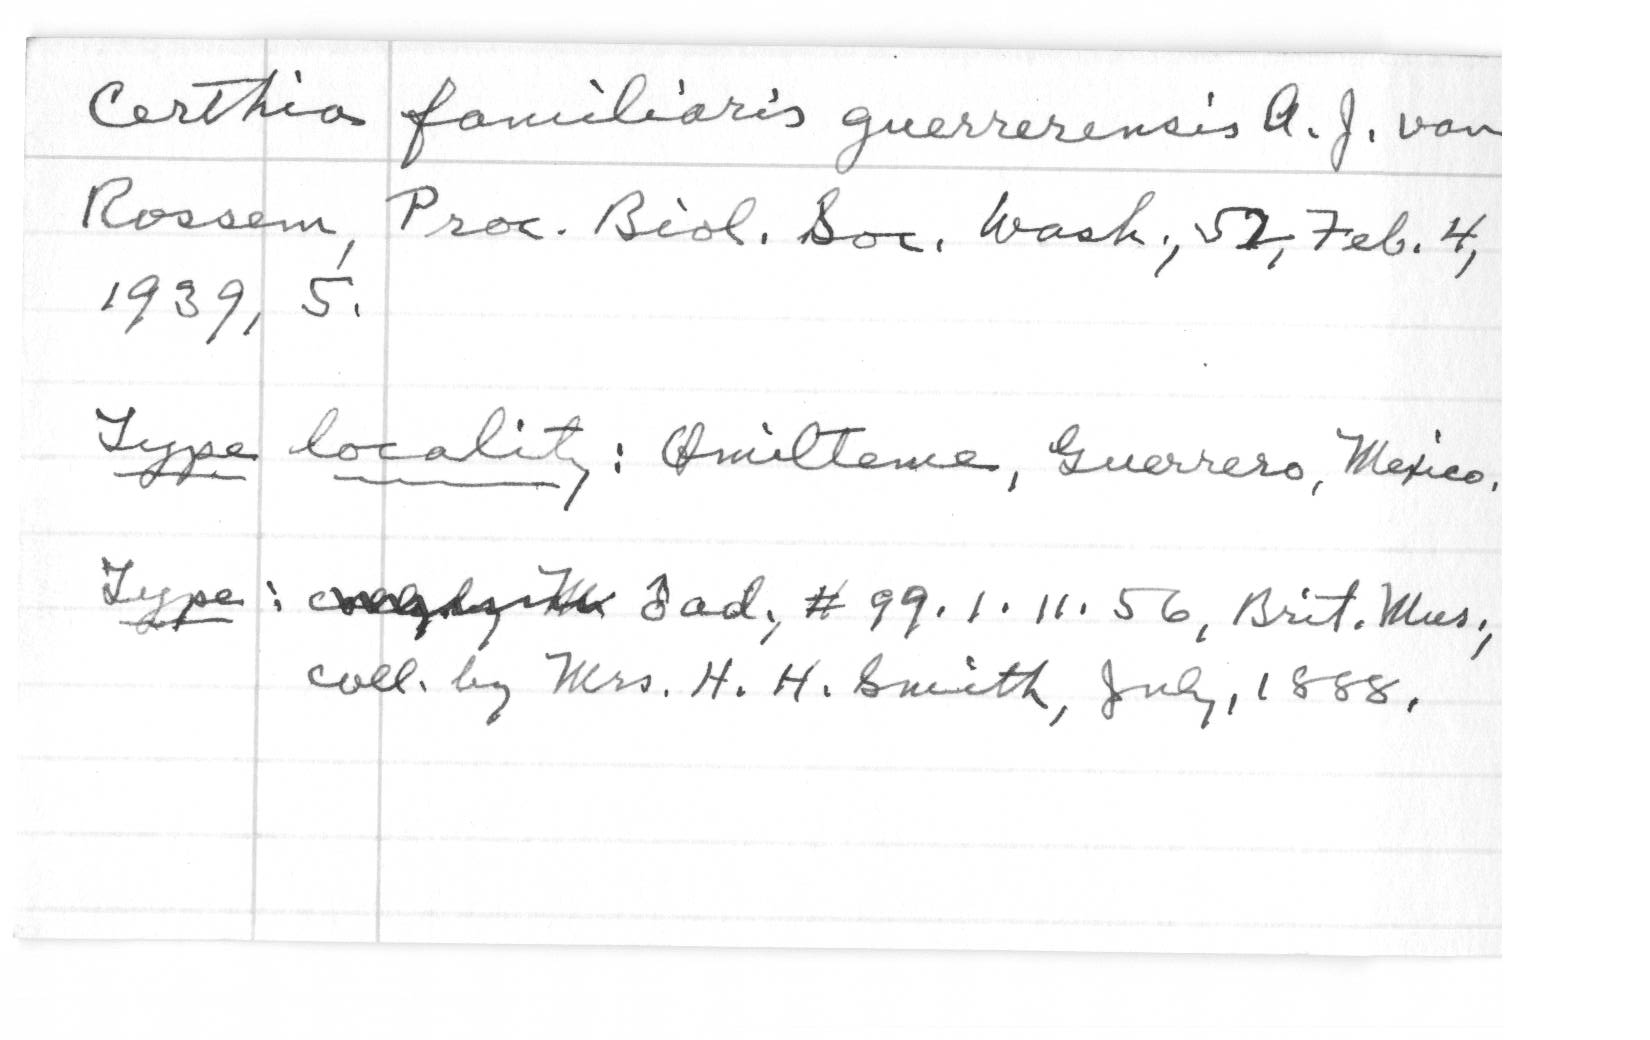 Certhia familiaris guerrerensis A. J. van
Rossem, Proc. Biol. Soc. Wash., 52, Feb. 4,
1939, 5.
Type locality: Omilteme, Guerrero, Mexico.
Type: ♂ ad., # 99.1.11.56, Brit. Mus.,
coll. by Mrs. H. H. Smith, July, 1888.